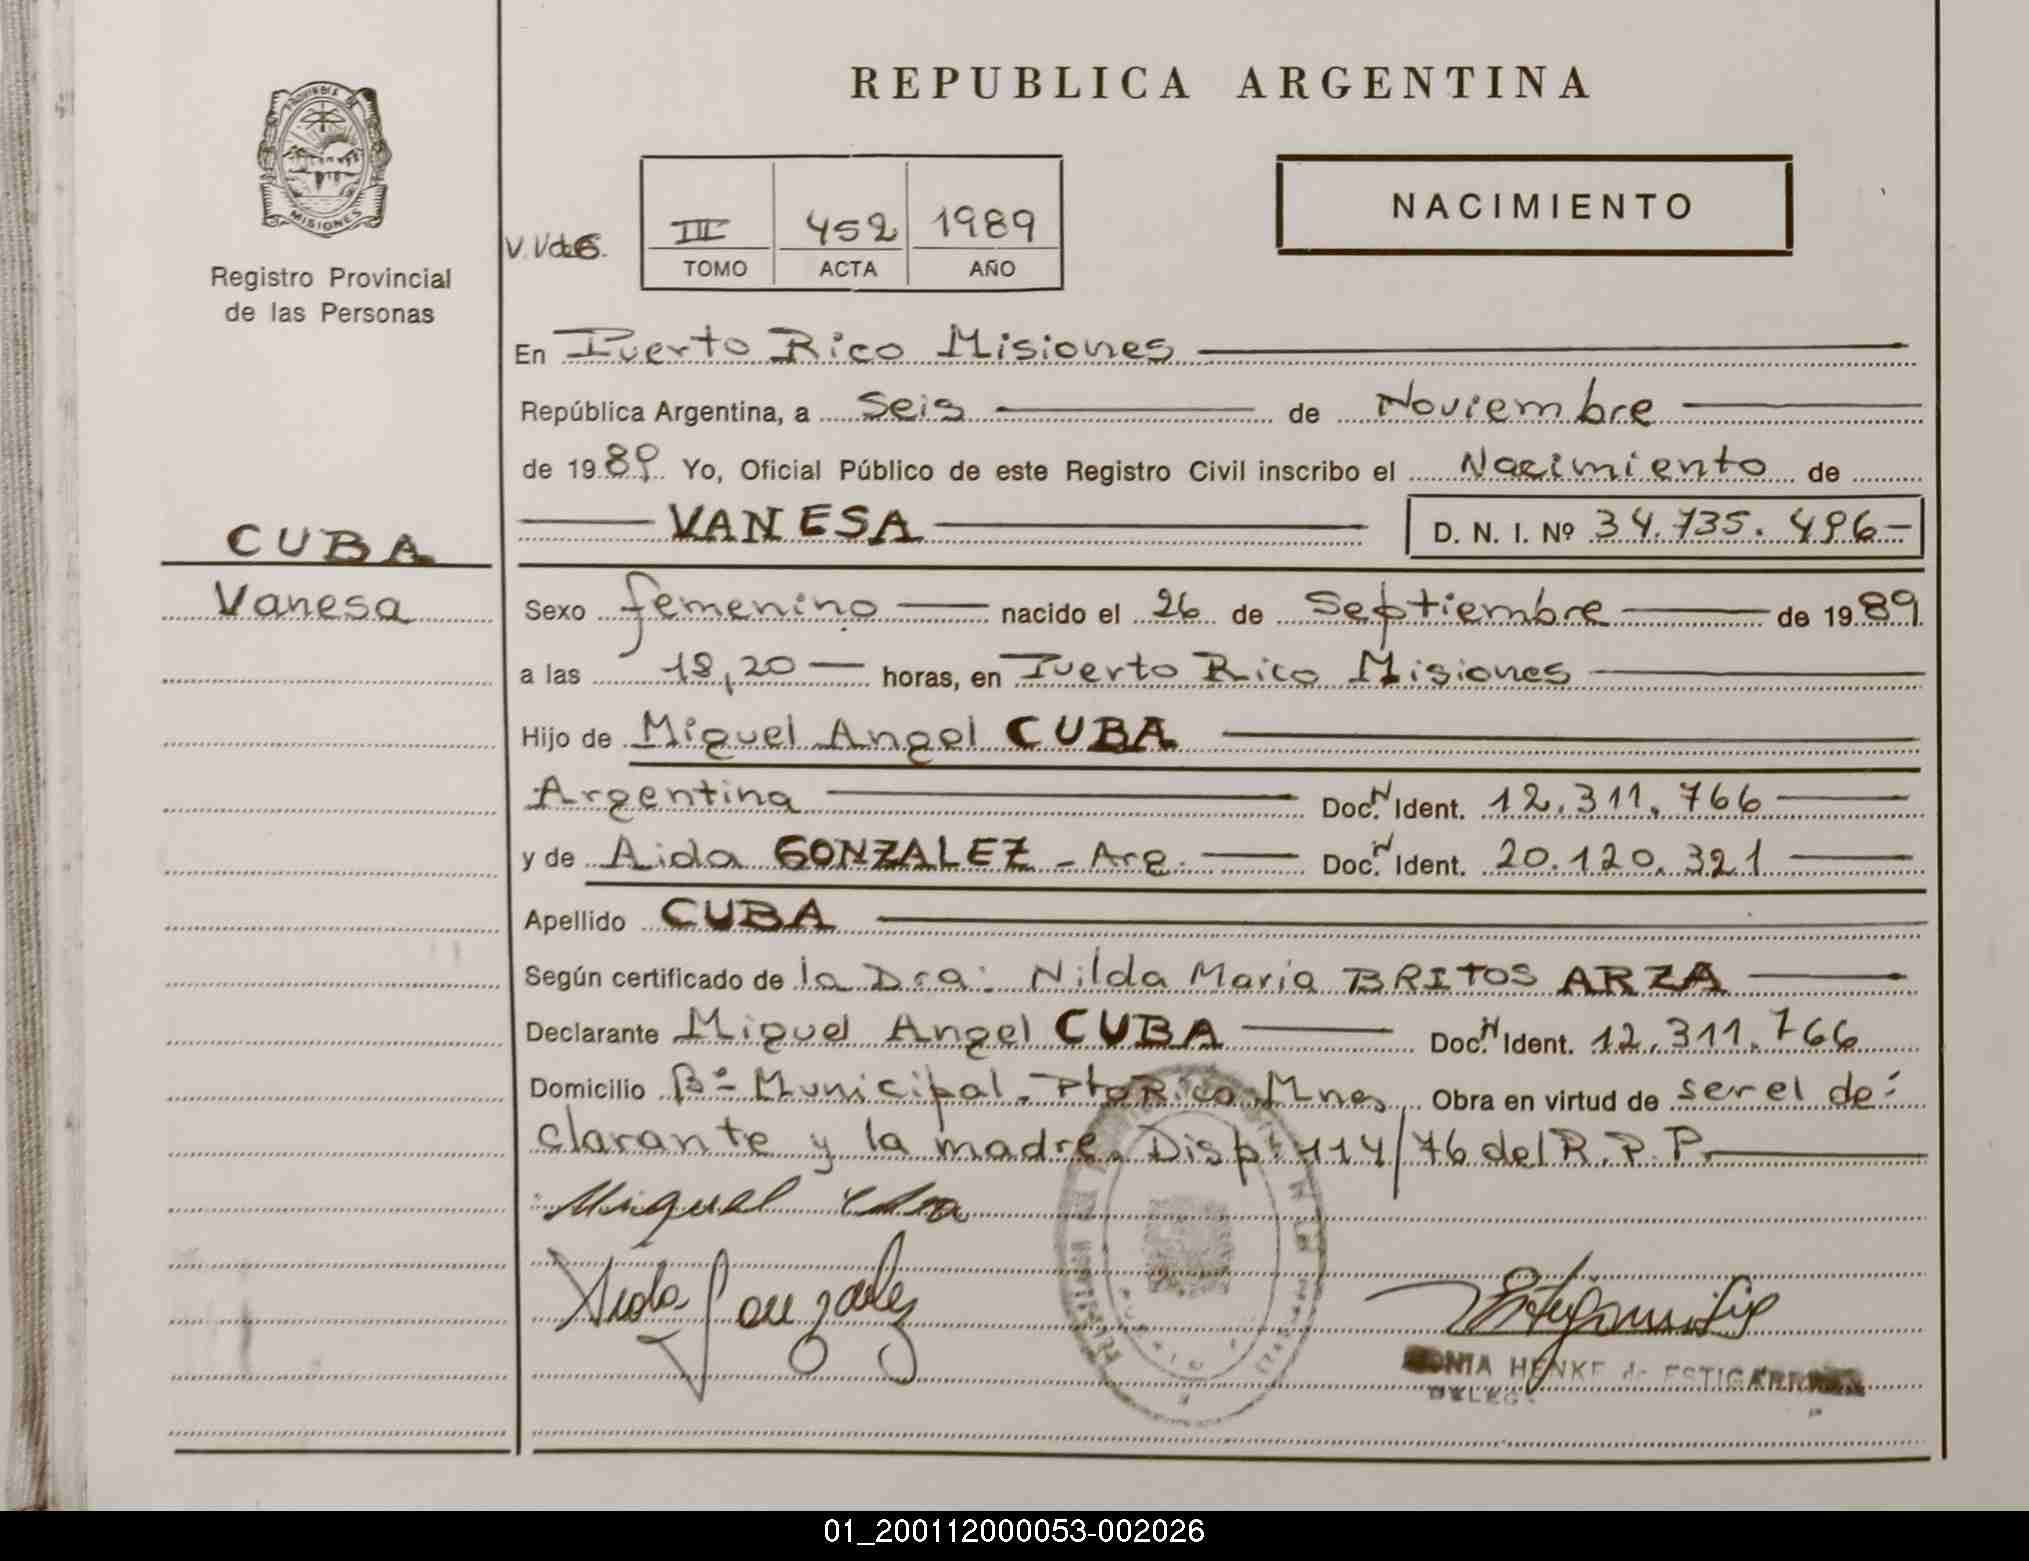 REPUBLICA ARGENTINA
PROVINCIA DE
MISIONES
Registro Provincial
de las Personas
III 452 1989
TOMO ACTA AÑO
NACIMIENTO
En Puerto Rico Misiones
República Argentina, a Seis de Noviembre
de 1989 Yo, Oficial Público de este Registro Civil inscribo el Nacimiento de
VANESA D. N. I. Nº 34.735.496-
CUBA
Vanesa
Sexo femenino nacido el 26 de Septiembre de 1989
a las 18,20 horas, en Puerto Rico Misiones
Hijo de Miguel Angel CUBA
Argentina Doc. N Ident. 12.311.766
y de Aida GONZALEZ - Arg. Doc. N Ident. 20.120.321
Apellido CUBA
Según certificado de la Dra: Nilda Maria BRITOS ARZA
Declarante Miguel Angel CUBA Doc. N Ident. 12.311.766
Domicilio Bº- Municipal. Pto Rico Mnes Obra en virtud de ser el de-
clarante y la madre. Disp. 114/76 del R.P.P.
Miguel Cuba
Aida Gonzalez
SONIA HENKE de ESTIGARRIBIA
DELEG.
01_200112000053-002026